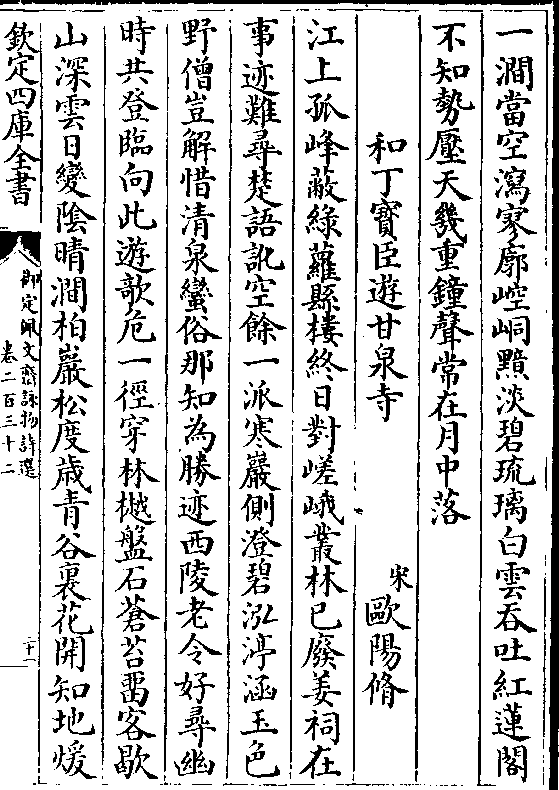 一澗當空瀉寥廓崆峒黯淡碧琉璃白雲吞吐紅蓮閣
不知勢壓天幾重鐘聲常在月中落
和丁寶臣遊甘泉寺 宋 歐陽脩
江上孤峰蔽綠蘿縣樓終日對嵯峨叢林已廢姜祠在
事迹難尋楚語訛空餘一派寒巖側澄碧泓渟涵玉色
野僧豈解惜清泉蠻俗那知為勝迹西陵老令好尋幽
時共登臨向此遊欹危一徑穿林樾盤石蒼苔畱客歇
山深雲日變陰晴澗柏巖松度歲青谷裏花開知地煖
欽定四庫全書
御定佩文齋詠物詩選
卷二百三十二
二十一